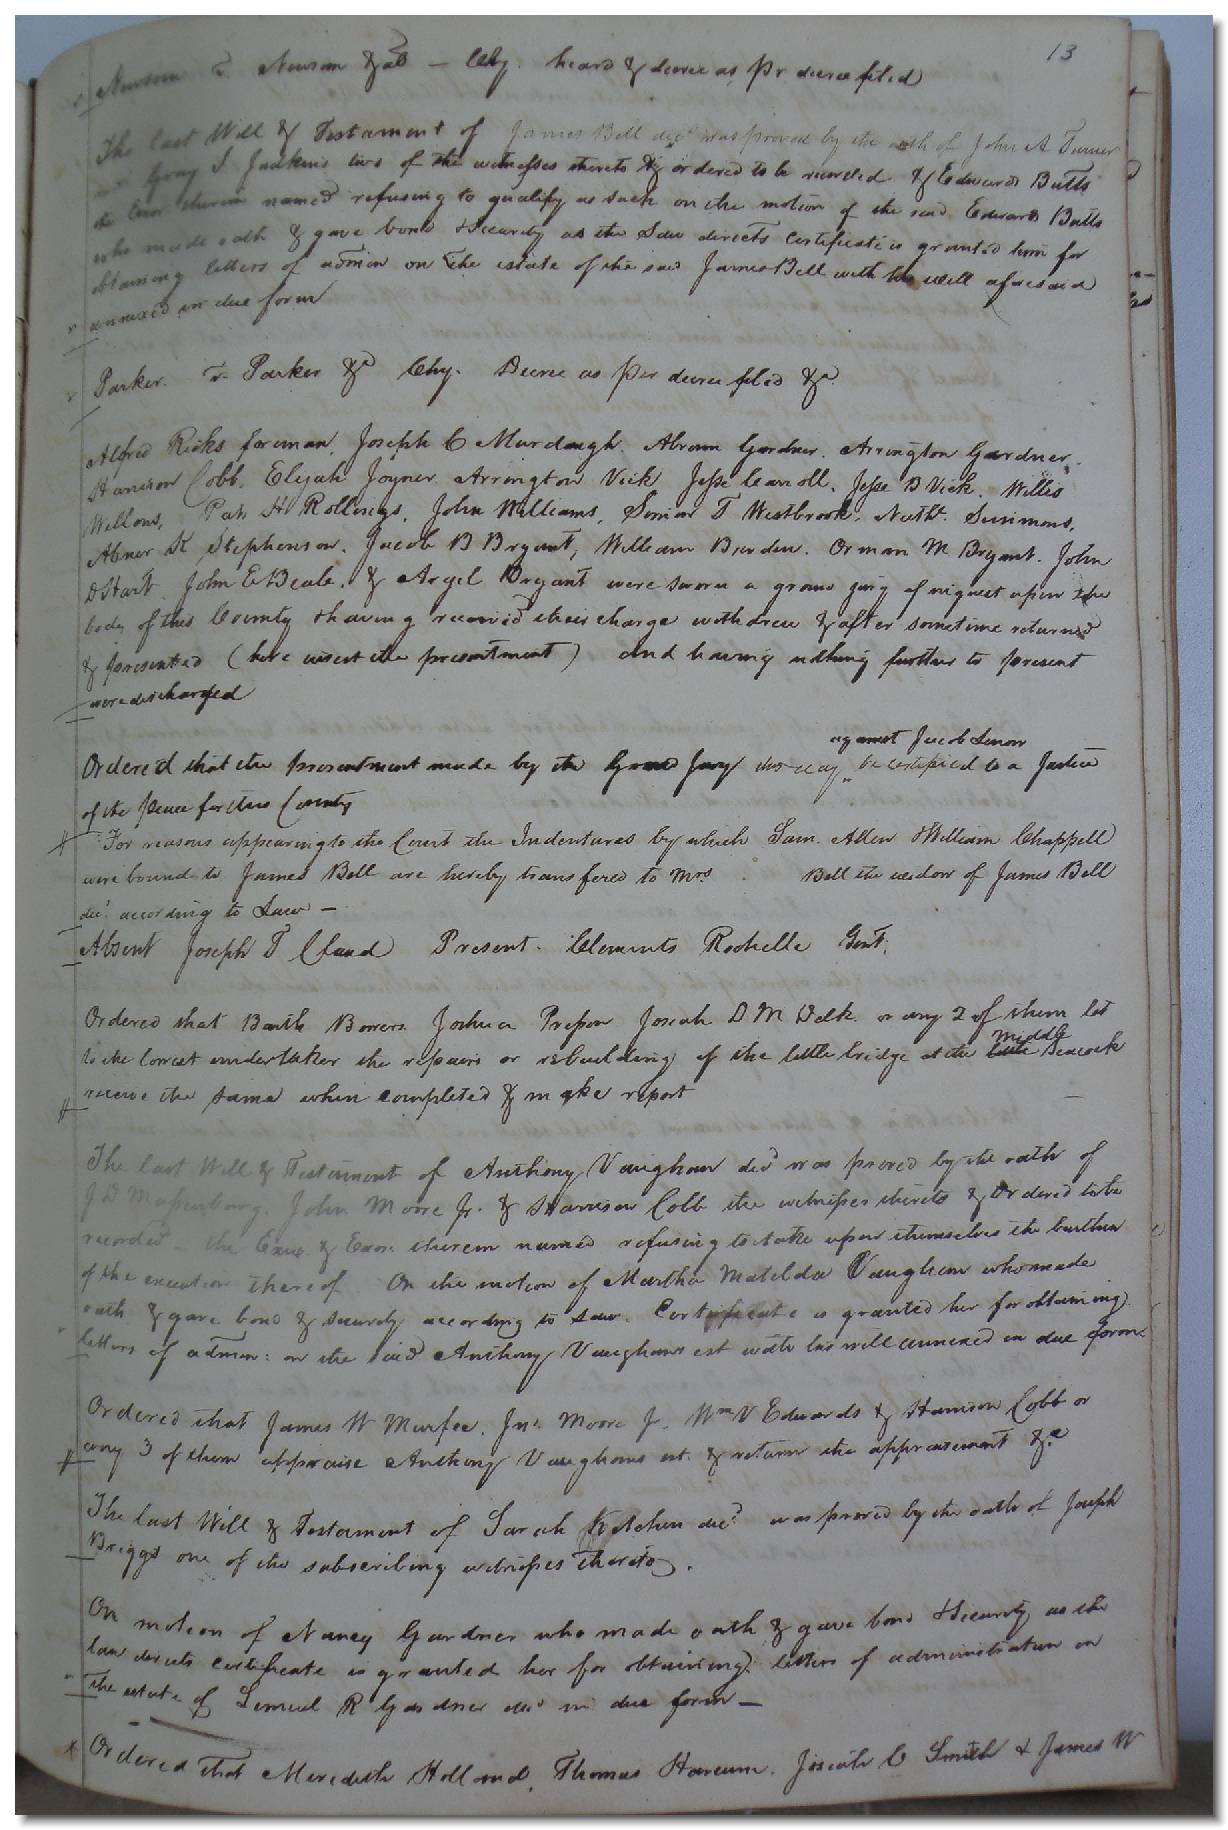 13
Newsom vs Newsom &als — Chy. heard & decree as pr decree filed
The last Will & Testament of James Bell decd was proved by the oath of John A Turner
Gray J. Judkins two of the witnesses thereto & ordered to be recorded & Edwards Butts
the Exor therein named refusing to qualify as such on the motion of the said Edwards Butts
who made oath & gave bond & Security as the Law directs certificate is granted him for
obtaining letters of admon on the estate of the said James Bell with his will aforesaid
annexed in due form
Parker vs Parker &c Chy. Decree as per decree filed &c
Alfred Ricks foreman, Joseph C Murdaugh, Abram Gardner, Arrington Gardner,
Harrison Cobb, Elijah Joyner Arrington Vick Jesse Carroll, Jesse D Vick, Willis
Wellons, H Rollings, John Williams, T Westbrook, Simmons,
Abner K Stephenson, Jacob B Bryant, William Burden, Orman M Bryant, John
D Hart, John E Beale, & Argel Bryant were sworn a grand jury of inquest upon the
body of this County & having received their charge withdrew & after sometime returned
& presented (here insert the presentment) and having nothing further to present
were discharged
against Jacob
Ordered that the presentment made by the Grand Jury this day be certified to a Justice
of the peace for this County
For reasons appearing to the Court the Indentures by which Sam. Allen & William Chappell
were bound to James Bell are hereby transfered to Mrs Bell the widow of James Bell
decd according to Law —
Absent Joseph T Claud Present. Clements Rochelle Gent.
Ordered that Barth Bowers Joshua Presson Josiah D M Delk or any 2 of them let
middle
to the lowest undertaker the repairs or rebuilding of the little bridge at the little Seacock
receive the same when completed & make report
The last Will & Testament of Anthony Vaughan decd was proved by the oath of
J D Massenburg, John Moore Jr. & Harrison Cobb the witnesses thereto & Ordered to be
recorded — the & Exor. therein named refusing to take upon themselves the burthen
of the execution thereof On the motion of Martha Matilda Vaughan who made
oath & gave bond & security according to Law. Certificate is granted her for obtaining
letters of admon: on the said Anthony Vaughans est with his will annexed in due form
Ordered that James W Murfee, Jno. Moore Jr. Wm V Edwards & Harrison Cobb or
any 3 of them appraise Anthony Vaughans est. & return the appraisement &c
The last Will & Testament of Sarah Kitchen decd was proved by the oath of Joseph
Briggs one of the subscribing witnesses thereto.
On motion of Nancy Gardner who made oath & gave bond & Security as the
law directs certificate is granted her for obtaining letters of administration on
the estate of Lemuel R Gardner decd in due form —
Ordered that Meredith Holland, Thomas Harcum, Josiah C Smith & James W